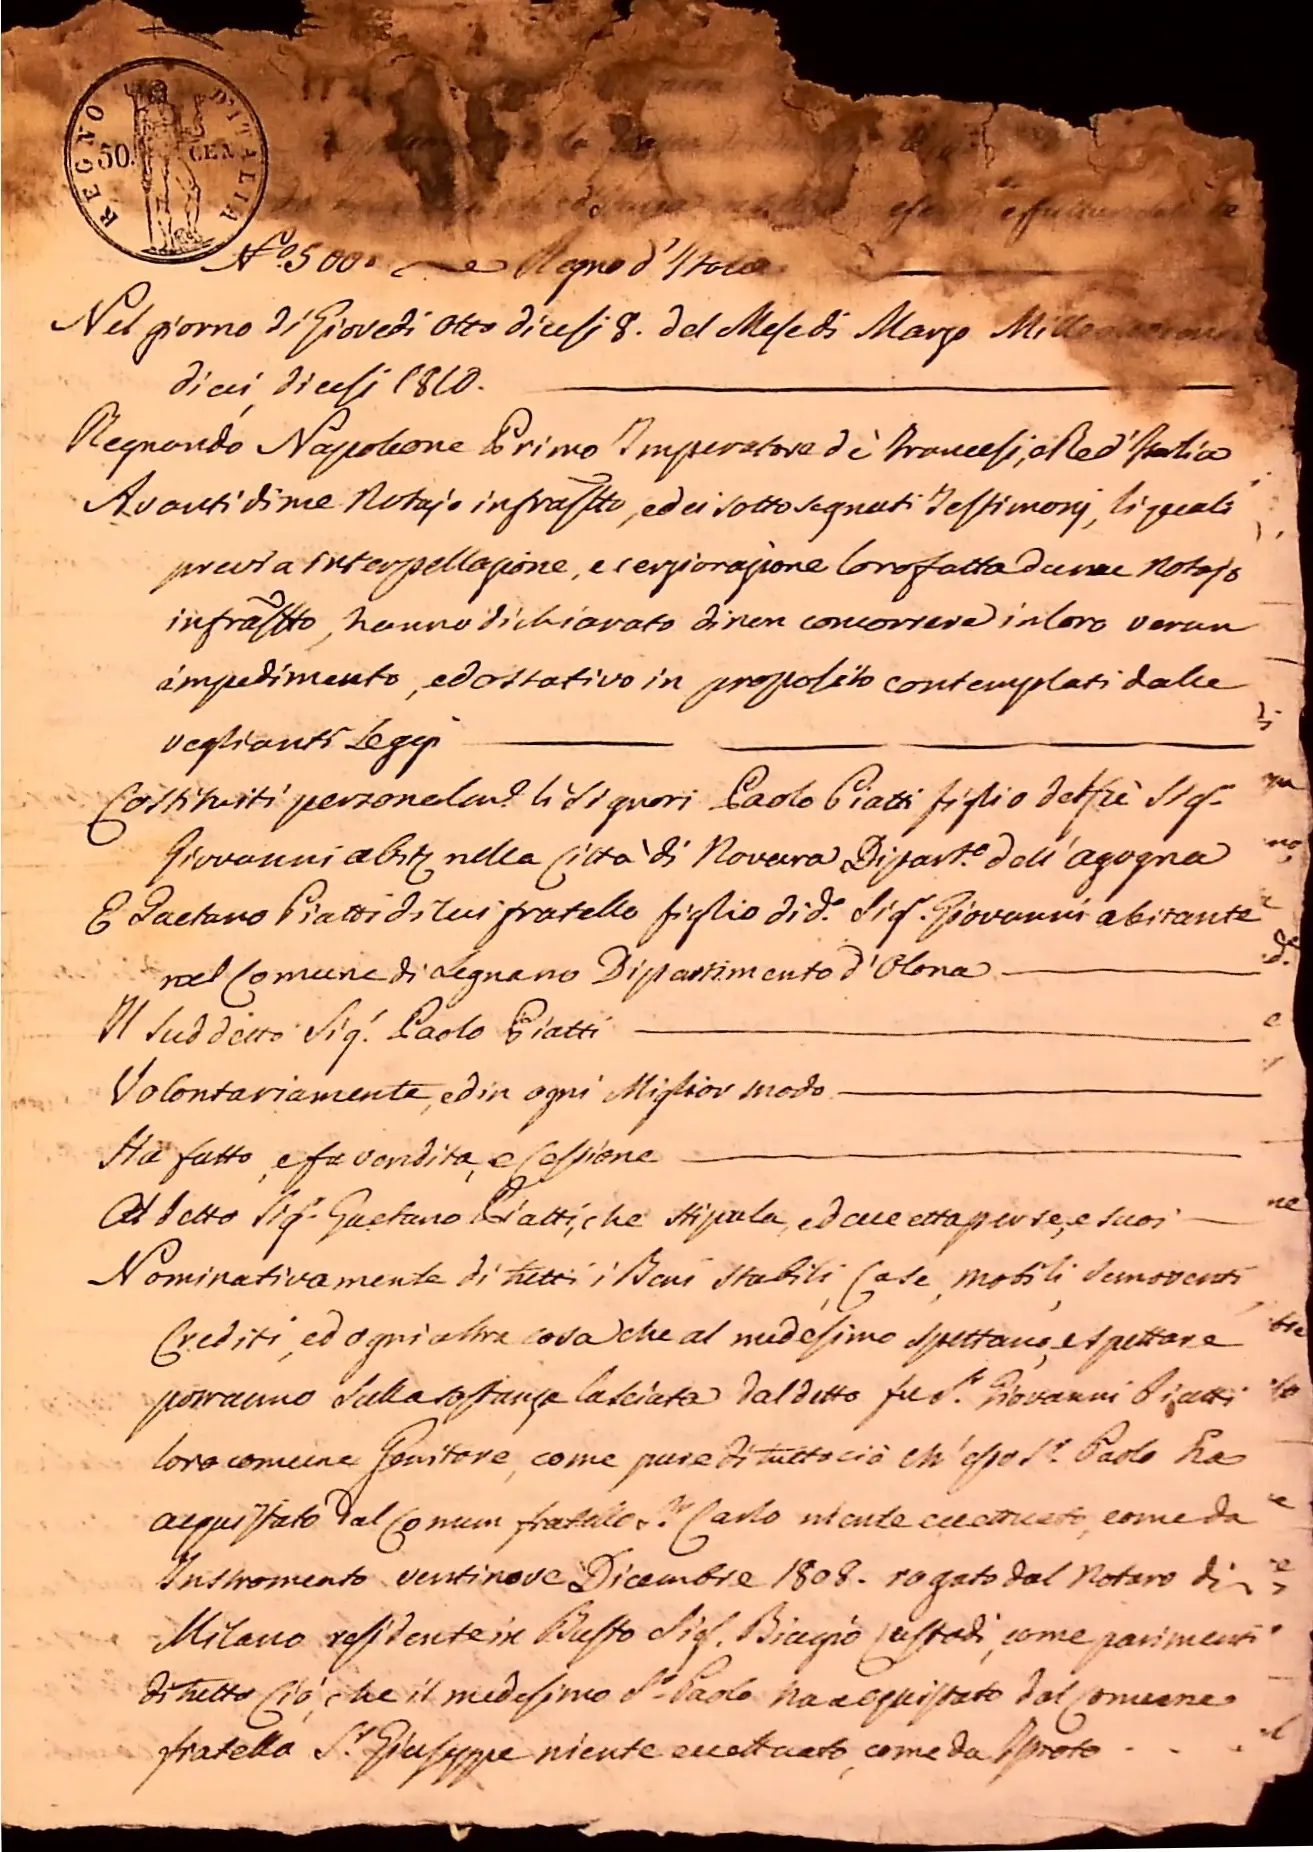 REGNO D'ITALIA
50. CEN
N.º 500. Regno d'Italia
Nel giorno di Giovedi Otto dicesi 8. del Mese di Marzo
dieci, dicesi 1810.
Regnando Napoleone Primo Imperatore de' Francesi, e Re d'Italia
Avanti di me Notajo infrastto, ed ei sottosegnati Testimonj, li quali
previa interpellazione, e cerziorazione loro fatta da me Notajo
infrastto, hanno dichiarato di non concorrere in loro verun
impedimento, ed ostativo in proposito contemplati dalle
veglianti Leggi
Costituiti personalm.e li Signori Paolo Piatti figlio del fù Sig.r
Giovanni abit.e nella Città di Novara Dipart.o dell'agogna
E Gaetano Piatti di lui fratello figlio di d.o Sig.r Giovanni abitante
nel Comune di Legnano Dipartimento d'Olona
Il suddetto Sig.r Paolo Piatti
Volontariamente, ed in ogni Miglior modo
Ha fatto, e fa vendita, e Cessione
Al detto Sig.r Gaetano Piatti, che stipula, ed accetta per se, e suoi
Nominativamente di tutti i Beni stabili, Case, mobili, semoventi,
Crediti, ed ogni altra cosa che al medesimo spettano, e spettare
porranno sulla sostanza lasciata dal detto fu S.r Giovanni Piatti
loro comune Genitore, come pure di tuttociò ch'esso S.r Paolo ha
acquistato dal Comun fratello S.r Carlo niente eccettuato, come da
Instromento ventinove Dicembre 1808. rogato dal Notaro di
Milano residente in Busto Sig.r Biagio Custodi, come parimenti
di tutto Ciò, che il medesimo S.r Paolo ha acquistato dal Comune
fratello S.r Giuseppe niente eccettuato, come da Iproto